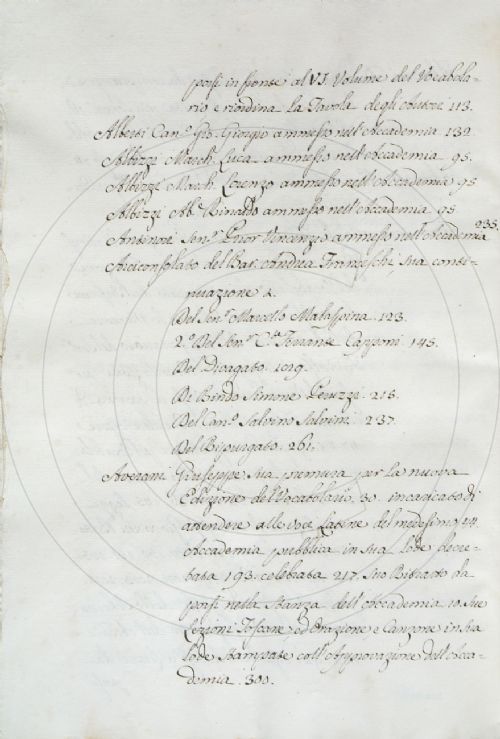 porsi in fronte al VI. Volume del Vocabola-
rio e riordina la Tavola degli Autori 113.
Alberti Can.º Gio. Giorgio ammesso nell'Accademia 132
Albizzi March. Luca ammesso nell'Accademia 95.
Albizzi March. Lorenzo ammesso nell'Accademia 95
Albizzi Ab. Rinaldo ammesso nell'Accademia 95
Antinori Sen.e Prior Vincenzio ammesso nell'Accademia 235.
Arciconsolato del Bar. Andrea Franceschi sua conti-
nuazione 2.
Del Sen.e Marcello Malaspina. 123.
2.º Del Sen.e Ferrante Capponi. 145.
Del Divagato. 1019.
De Bindo Simone Peruzzi. 215.
Del Can.º Salvino Salvini. 237.
Del Ripurgato. 261.
Averani Giuseppe: sua premura per la nuova
Edizione del Vocabolario. 30. incaricato di
attendere alle voce Latine del medesimo 14.
Accademia pubblica in sua lode decre-
tata 193. celebrata 217. Suo Ritratto da
porsi nella Stanza dell'Accademia 10. Sue
Lezioni Toscane, ed Orazione e Canzone in sua
lode stampate coll'Approvazione dell'Acca-
demia. 300.